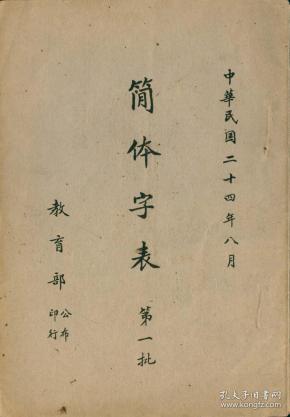 中華民国二十四年八月
简体字表 第一批
教育部 公布
印行
孔夫子旧书网
www.kongfz.com